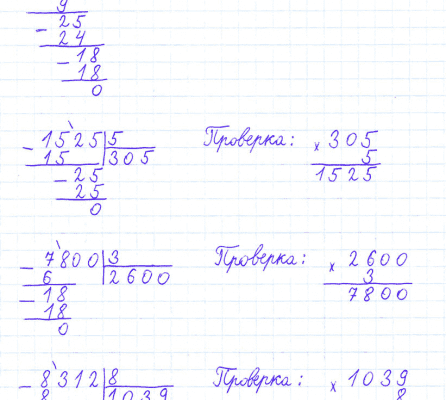 9
- 25
24
- 18
18
0
- 1525 | 5 Проверка: × 305
15 | 305 5
- 25 1525
25
0
- 7800 | 3 Проверка: × 2600
6 | 2600 3
- 18 7800
18
0
- 8312 | 8 Проверка: × 1039
8 | 1039 8